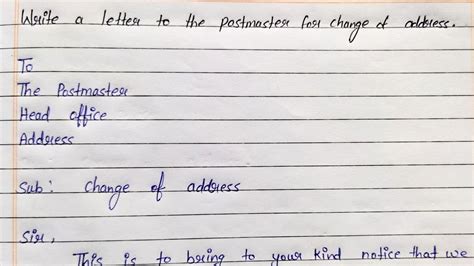 Write a letter to the postmaster for change of address.
To
The Postmaster
Head office
Address
Sub: change of address
Sir,
This is to bring to your kind notice that we